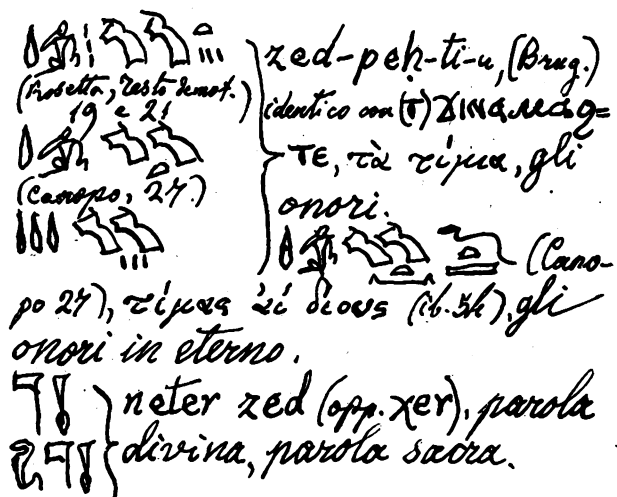 (Rosetta, testo demot.
19 e 21)
(Canopo, 27.)
zed-peḥ-ti-u, (Brug.)
identico con (ⲧ)ϫⲓⲛⲁⲙⲁϩ=
ⲧⲉ, τὰ τίμια, gli
onori.
(Cano-
po 27), τίμας ἀί δίους (ib.), gli
onori in eterno.
neter zed (opp. χer), parola
divina, parola sacra.